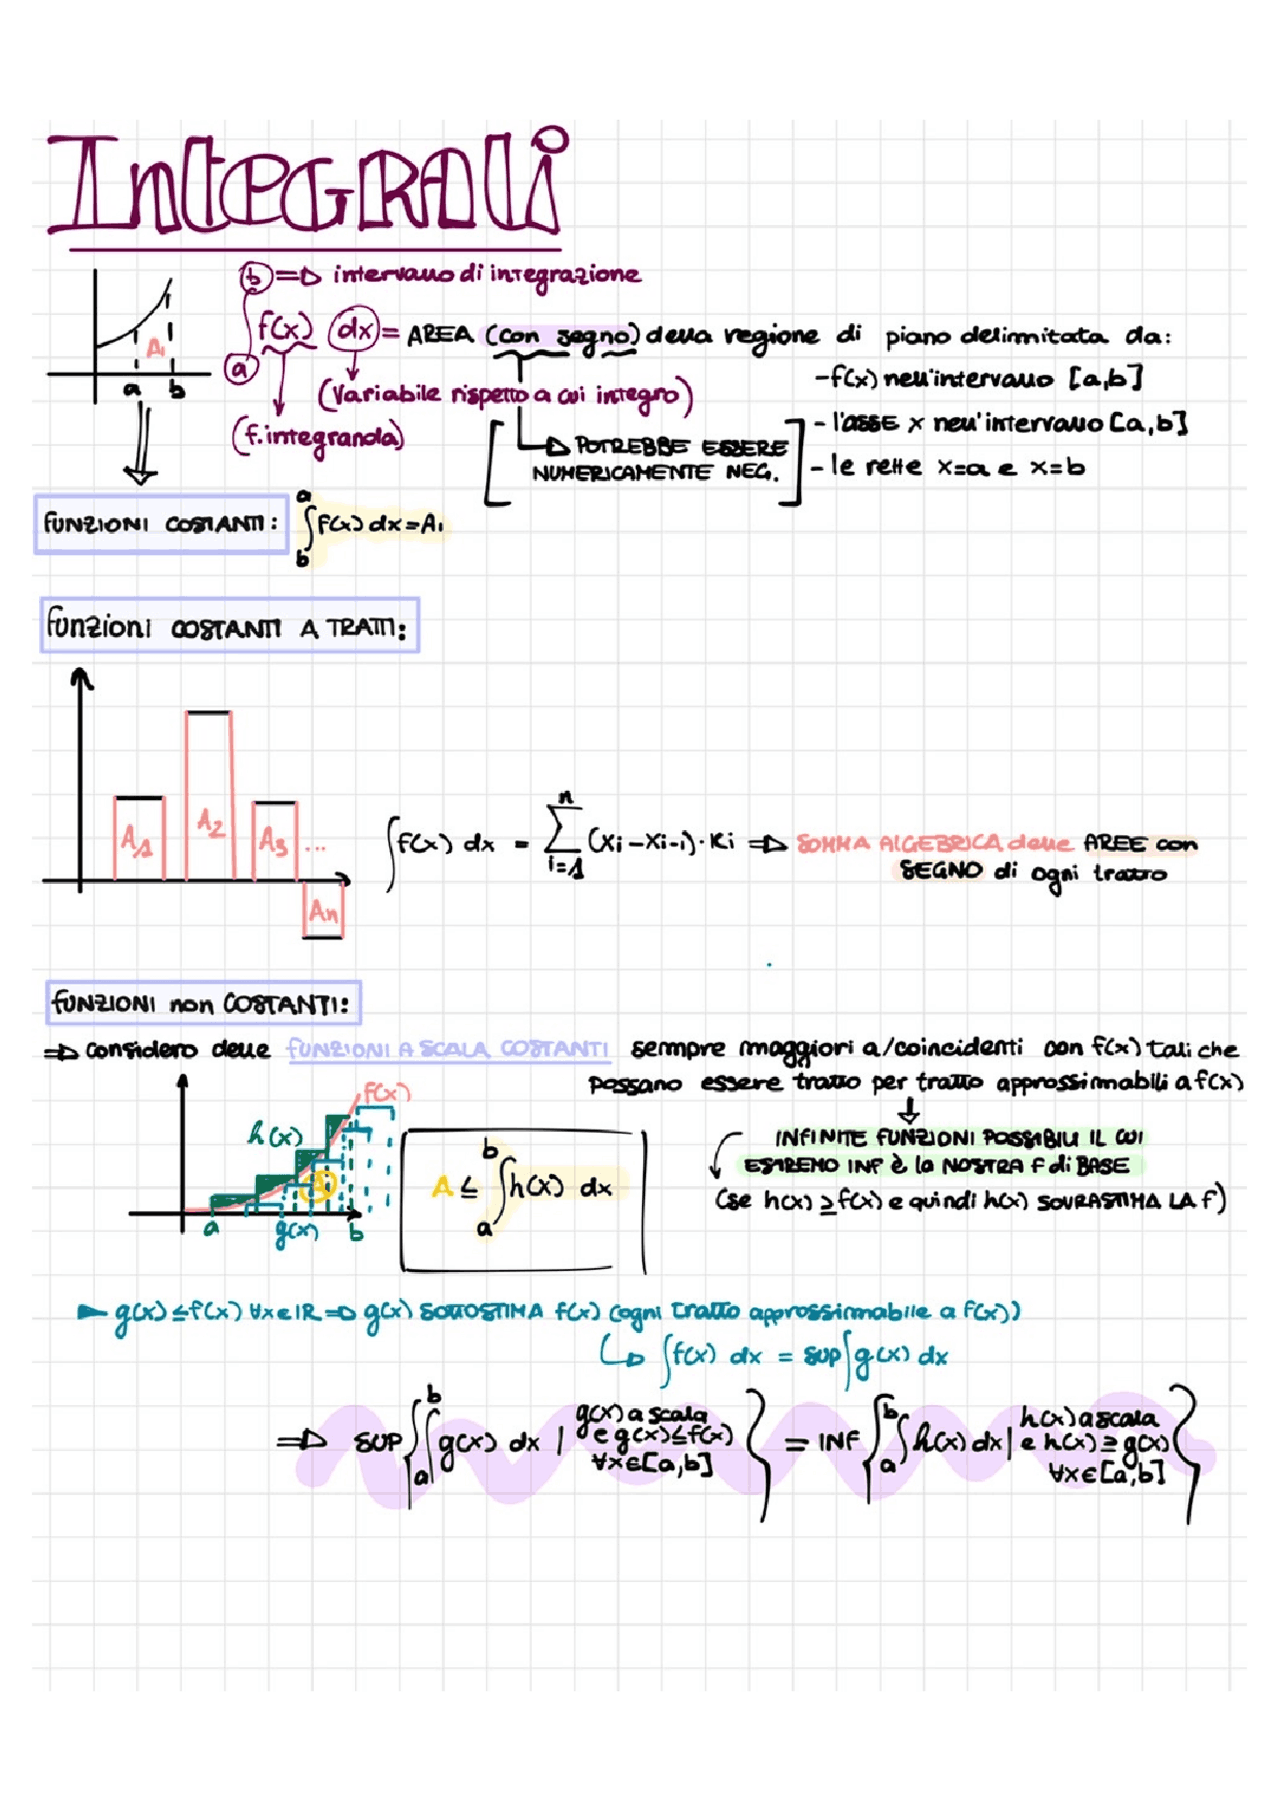 IntEGRAli
b => intervallo di integrazione
∫ f(x) dx = AREA (con segno) della regione di piano delimitata da:
a
(variabile rispetto a cui integro)
(f. integranda)
-f(x) nell'intervallo [a,b]
- l'asse x nell'intervallo [a,b]
- le rette x=a e x=b
[→ POTREBBE ESSERE
NUMERICAMENTE NEG.]
A₁
a b
FUNZIONI COSTANTI: a∫b f(x) dx = A₁
funzioni COSTANTI A TRATTI:
A1 A2 A3 ... An
∫f(x) dx = n∑i=1 (xi - xi-1)·Ki => SOMMA ALGEBRICA delle AREE con
SEGNO di ogni tratto
FUNZIONI non COSTANTI:
=> considero delle FUNZIONI A SCALA COSTANTI sempre maggiori a/coincidenti con f(x) tali che
possano essere tratto per tratto approssimabili a f(x)
↓
INFINITE FUNZIONI POSSIBILI IL CUI
ESTREMO INF è la NOSTRA f di BASE
(se h(x) ≥ f(x) e quindi h(x) SOVRASTIMA LA f)
f(x)
h(x)
A
a g(x) b
A ≤ b∫a h(x) dx
► g(x) ≤ f(x) ∀x∈IR => g(x) SOTTOSTIMA f(x) (ogni tratto approssimabile a f(x))
↳ ∫f(x) dx = sup∫g(x) dx
=> SUP { b∫a ∫g(x) dx | g(x) a scala e g(x)≤f(x) ∀x∈[a,b] } = INF { b∫a ∫h(x) dx | h(x) a scala e h(x) ≥ g(x) ∀x∈[a,b] }